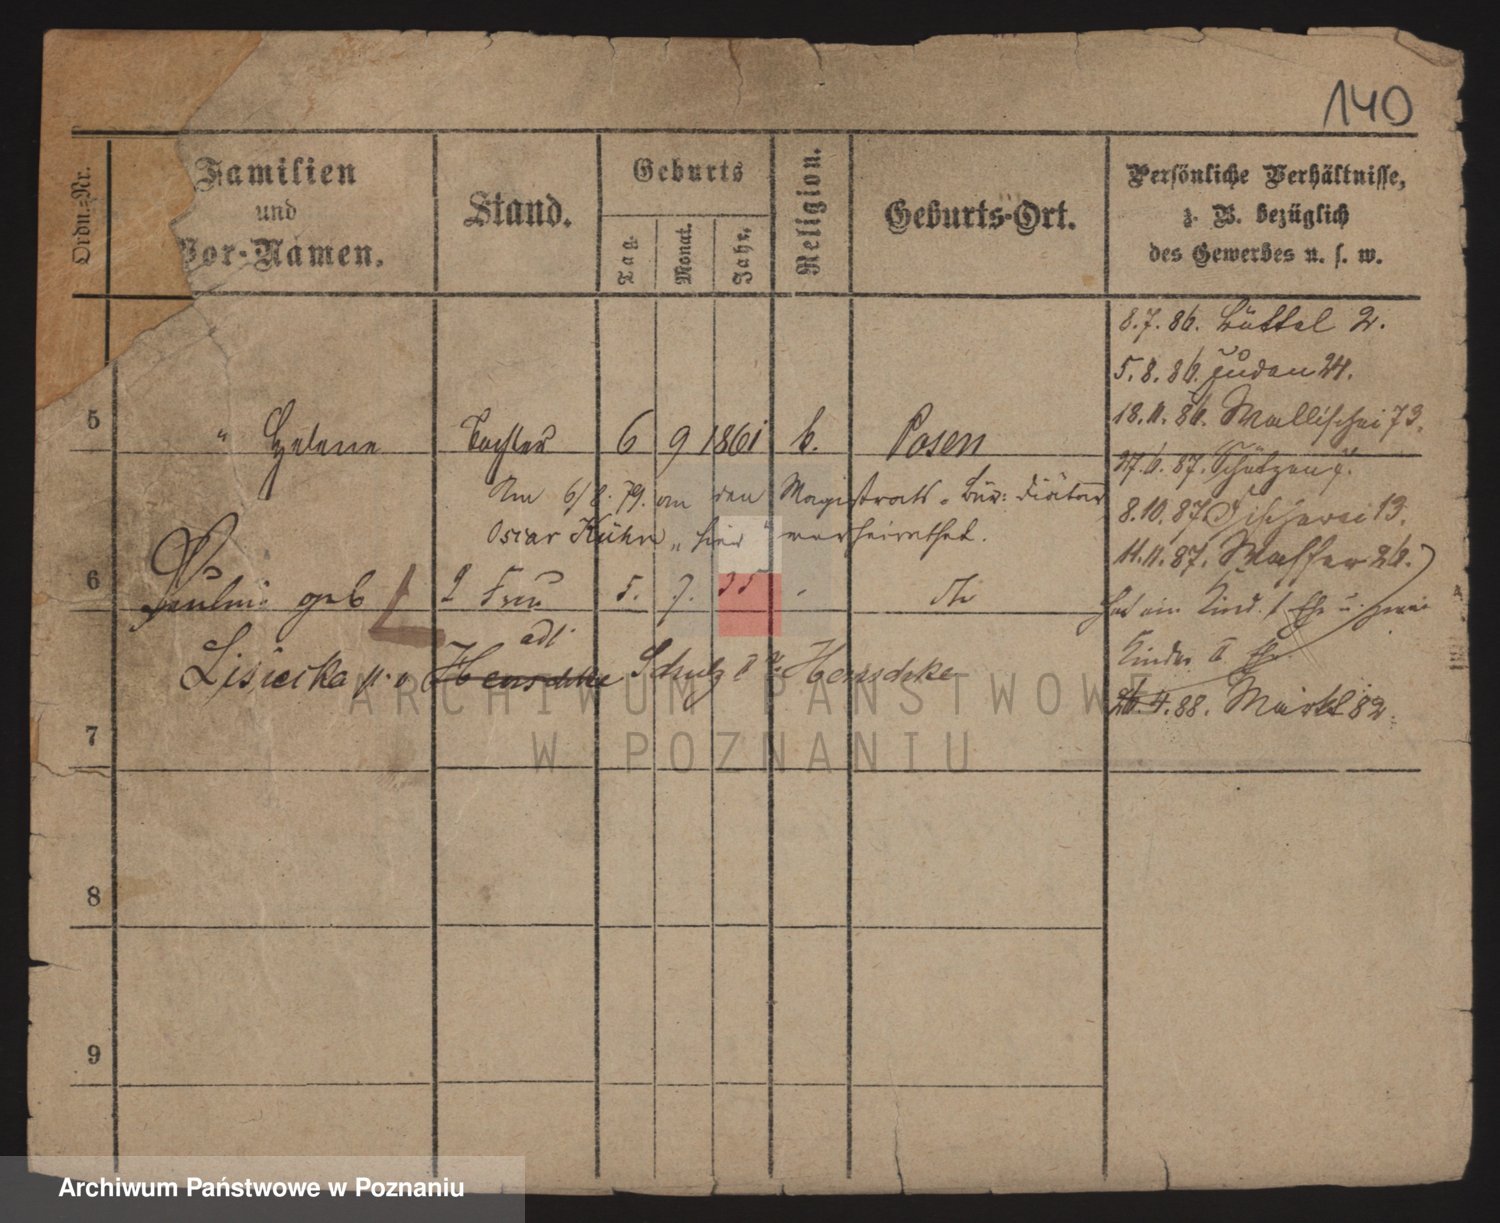 140
Ordn.-Nr.
Familien
und
Vor-Namen.
Stand.
Geburts
Tag.
Monat.
Jahr.
Religion.
Geburts-Ort.
Persönliche Verhältnisse,
z. B. bezüglich
des Gewerbes u. s. w.
8.7.86. Büttel 2.
5.8.86. Juden 24.
18.11.86. Wallischei 73.
5 " Helene Tochter 6 9 1861 k. Posen
27.6.87. Schützen 7.
Am 6/8.79. an den Magistrats-Bür: Diätar
8.10.87 Fischerei 13.
Oscar Kühn "hier" verheirathet.
11.11.87. Wasser 26.
6 Paulina geb 2 Frau 5. 7. 55
hat ein Kind I Ehe u. zwei
Kinder II Ehe
Lisiecka Henschke Schulz II v. Henschke
26.4.88. Markt 82.
7
8
9
ARCHIWUM PAŃSTWOWE
W POZNANIU
Archiwum Państwowe w Poznaniu